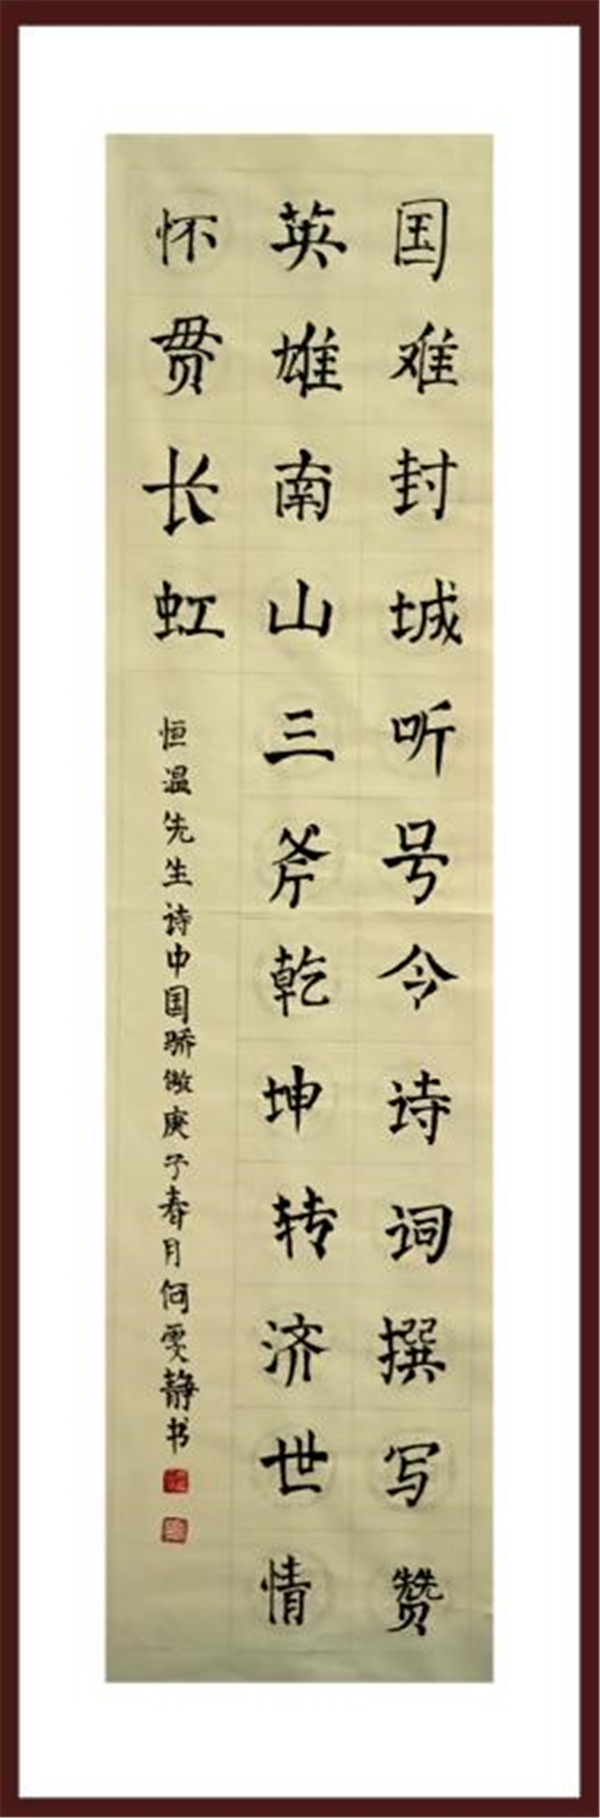 国难封城听号令诗词撰写赞
英雄南山三斧乾坤转济世情
怀贯长虹
恒温先生诗中国骄傲庚子春月何雯静书